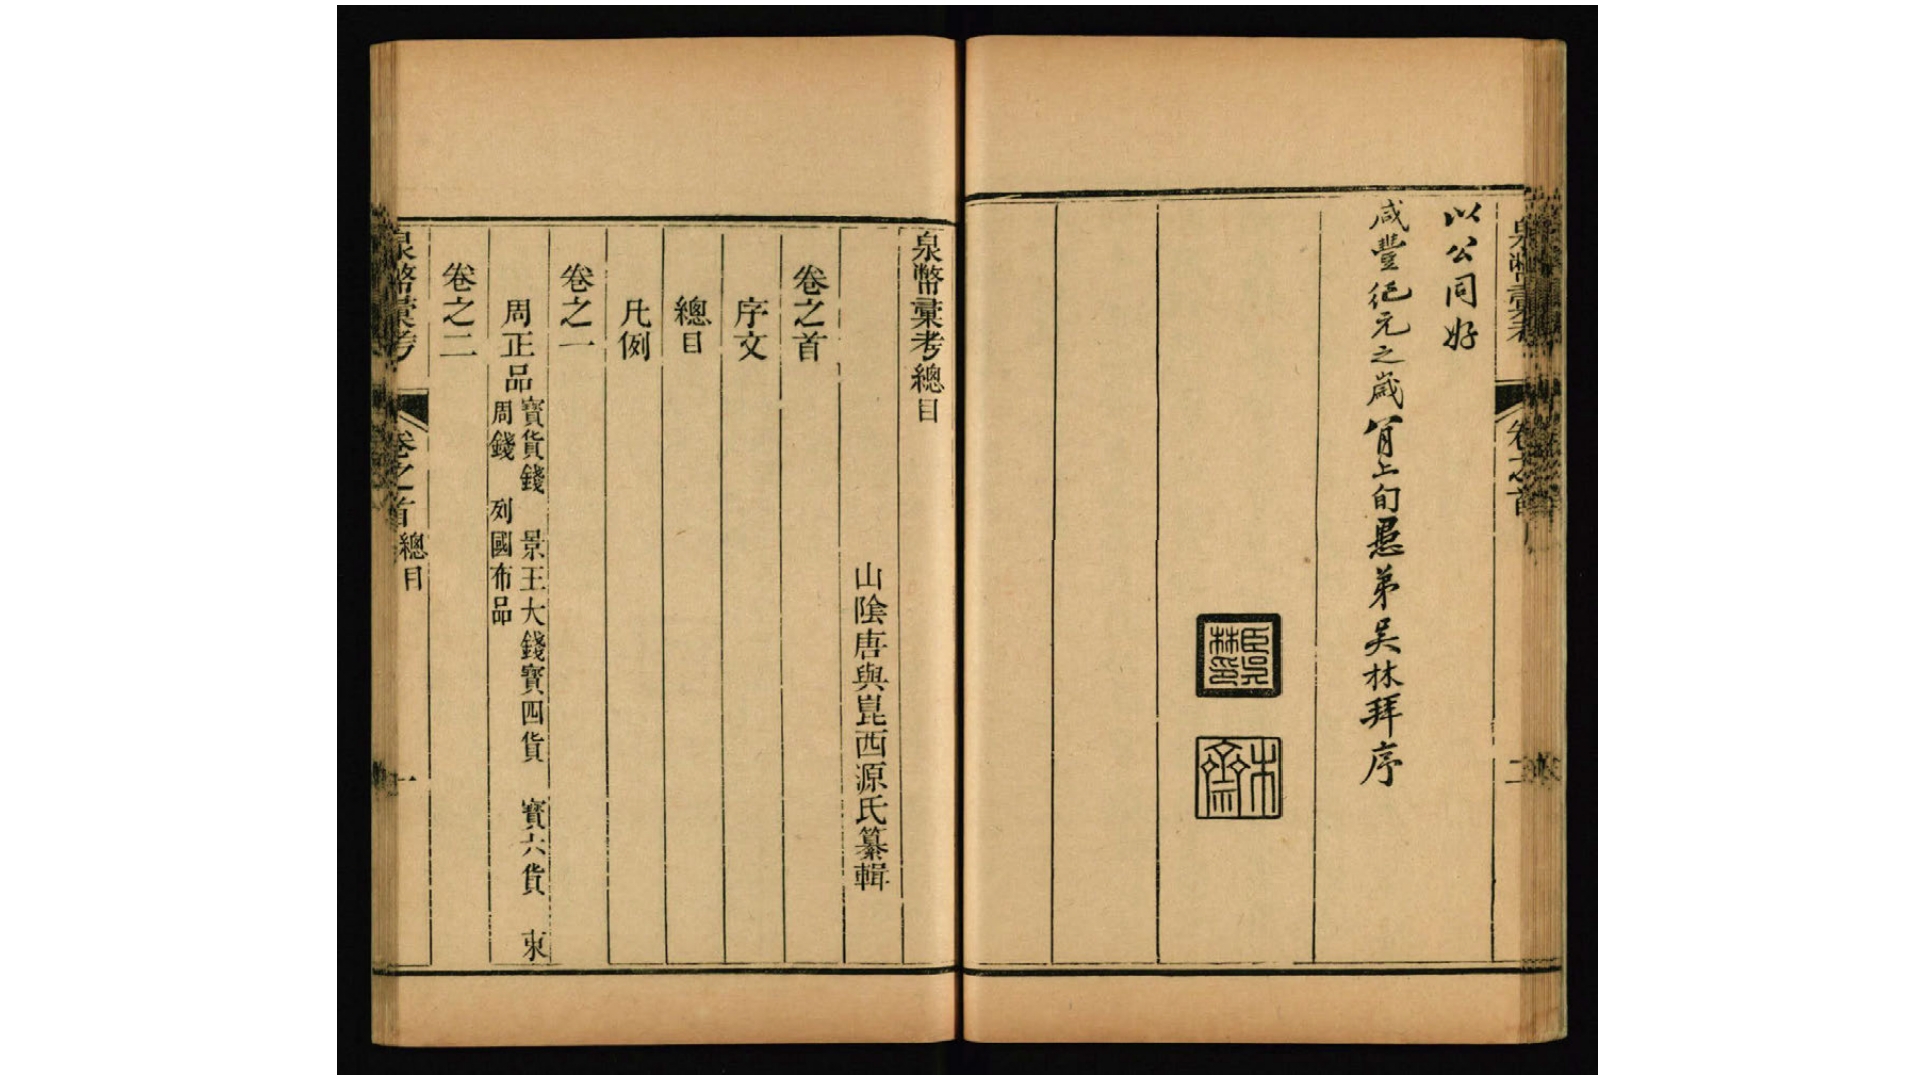 泉幣彙考
卷之首
二
以公同好
咸豐紀元之歲首月上旬愚弟吳林拜序
臣吳林印
泉幣彙考總目
山陰唐與崑西源氏纂輯
卷之首
序文
總目
凡例
卷之一
周正品 寶貨錢 景王大錢寶四貨 寶六貨 東
周錢 列國布品
卷之二
泉幣彙考
卷之首 總目
一